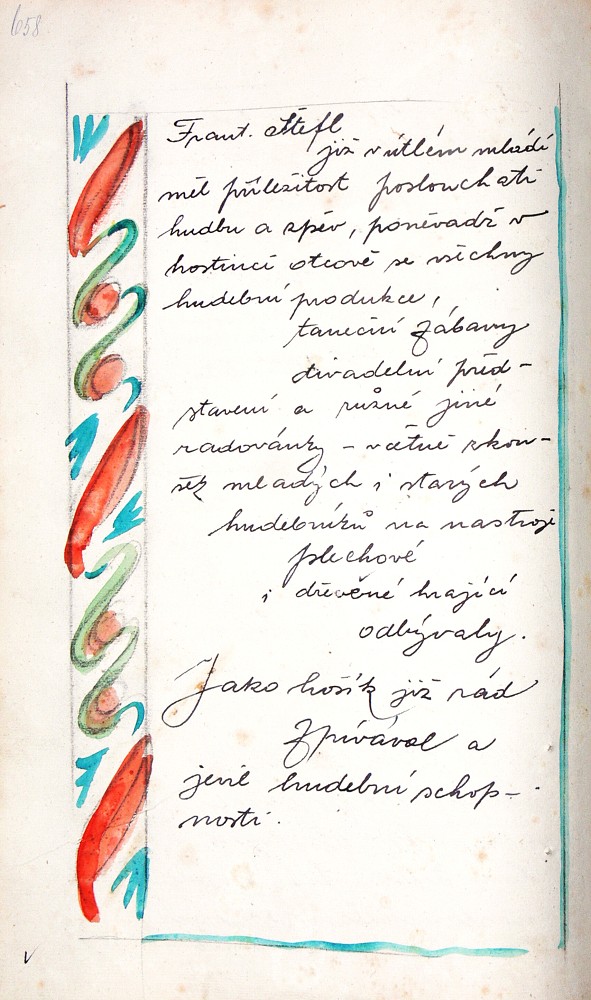 658
Frant. Štefl
již v útlém mládí
měl příležitost poslouchati
hudbu a zpěv, poněvadž v
hostinci otcově se všechny
hudební produkce,
taneční zábavy
divadelní před-
stavení a různé jiné
radovánky - včetně zkou-
šek mladých i starých
hudebníků na nastroje
plechové
i dřevěné hrající
odbývaly.
Jako hošík již rád
zpívával a
jevil hudební schop-
nosti.